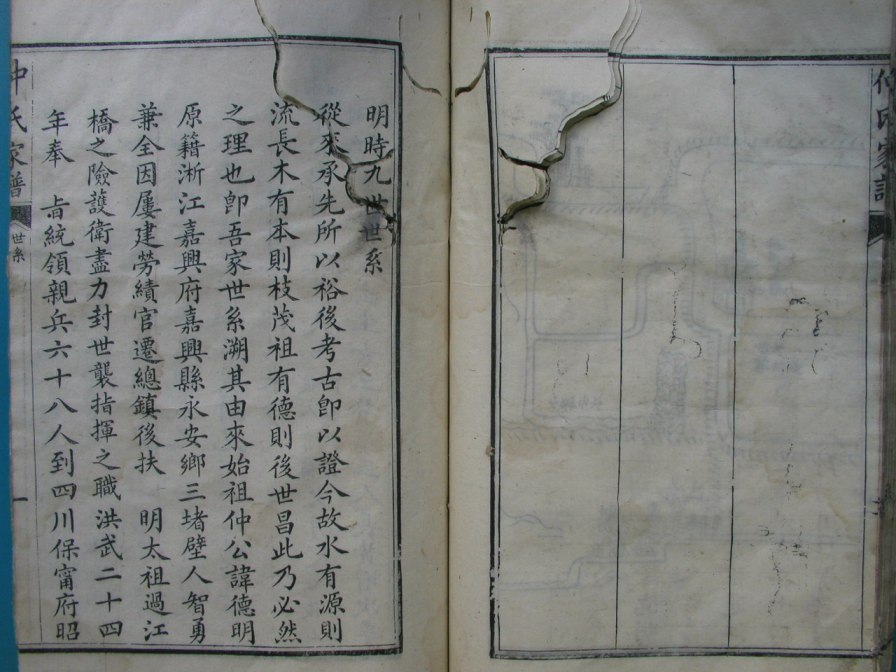 仲氏家譜
明時九世世系
從來承先所以裕後考古卽以證今故水有源則
流長木有本則枝茂祖有德則後世昌此乃必然
之理也卽吾家世系溯其由來始祖仲公諱德明
原籍淅江嘉興府嘉興縣永安鄉三堵壁人智勇
兼全因屢建勞績官遷總鎮後扶 明太祖過江
橋之險護衛盡力封世襲指揮之職洪武二十四
年奉 旨統領親兵六十八人到四川保甯府昭
仲氏家譜
世系
一